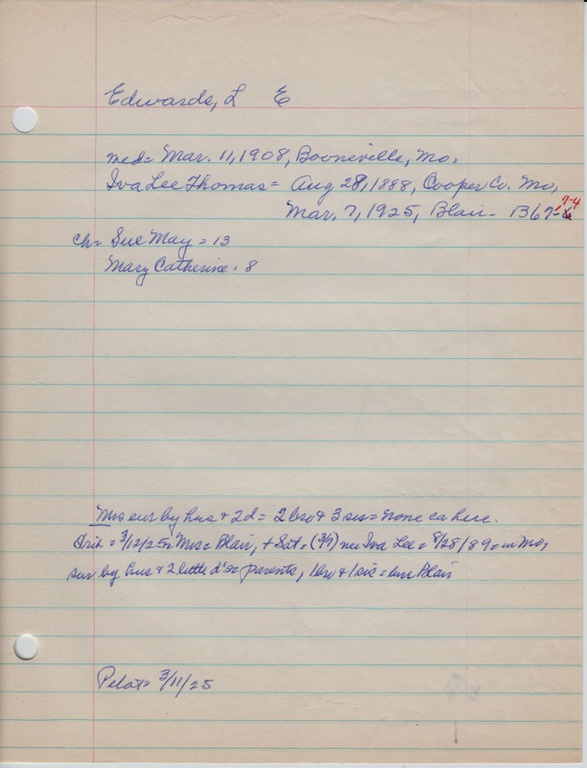 Edwards, L E
md= Mar. 11, 1908, Booneville, Mo.
Iva Lee Thomas= Aug 28, 1888, Cooper Co. Mo,
Mar, 7, 1925, Blair- B67-
7-4
ch= Sue May = 13
Mary Catherine = 8
Mrs sur by hus & 2 d= 2 bro & 3 sis= none ca here.
Trib = 3/12/25= Mrs= Blair, + Sat= (3/7) nee Iva Lee= 8/28/89=in Mo,
sur by hus & 2 little d's= parents, 1 bro & 1 sis= bur Blair
Pilot= 3/11/25